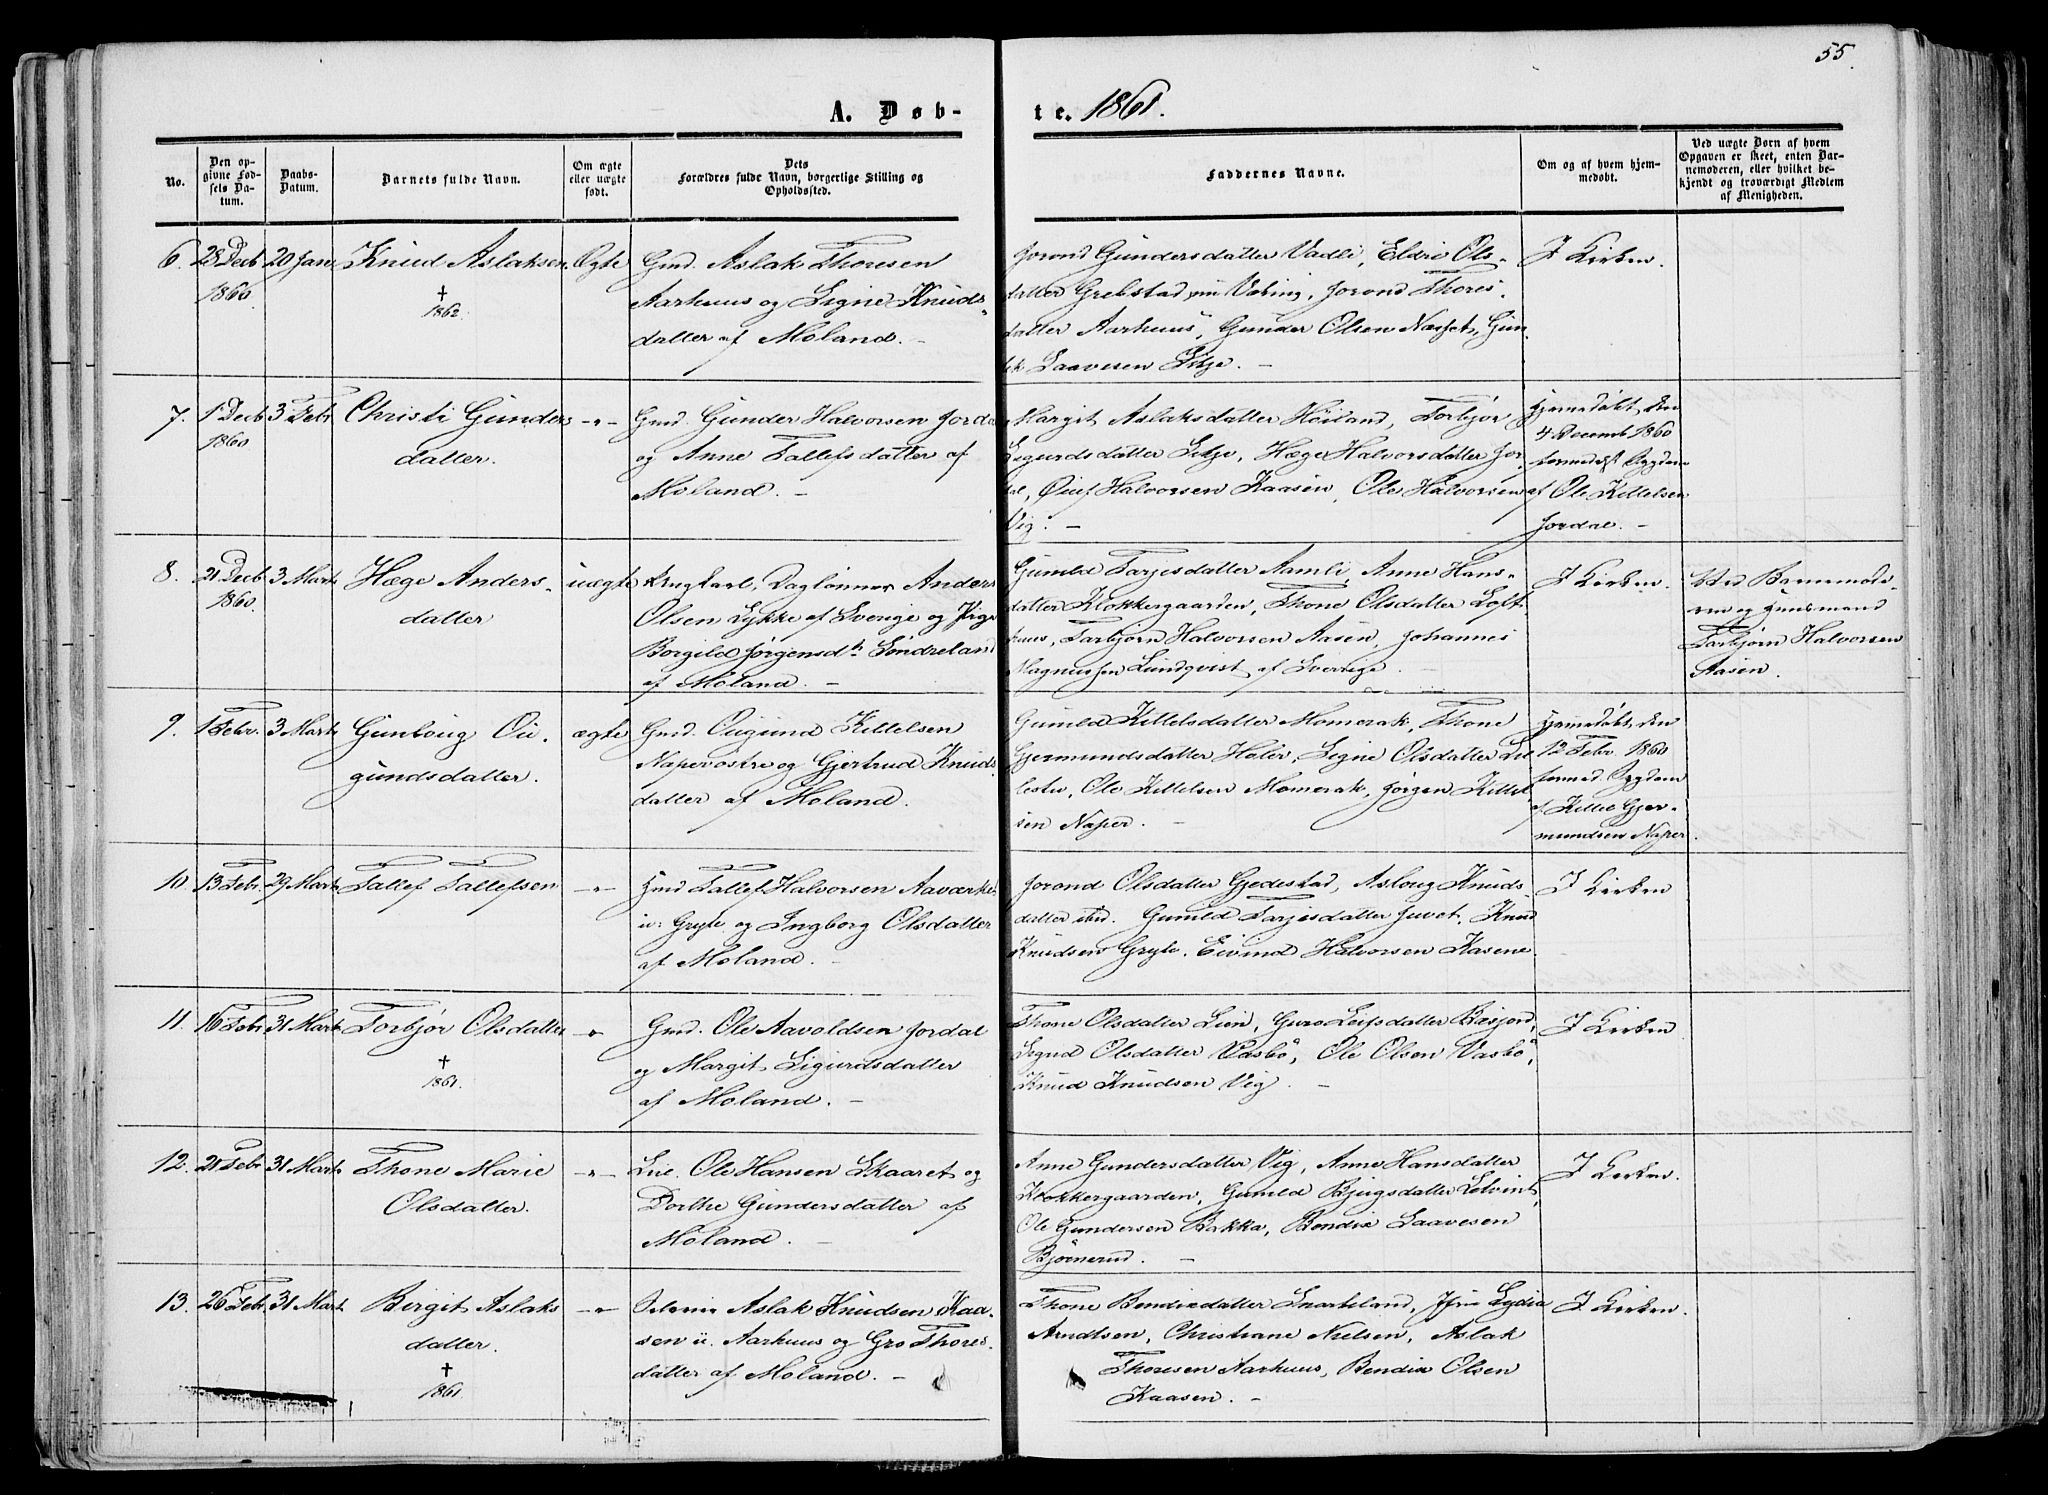 55.
A. Døb-
te. 1861.
No.
Den op-
givne Fød-
sels Da-
tum.
Daabs-
Datum.
Barnets fulde Navn.
Om ægte
eller uægte
født.
Dets
Forældres fulde Navn, borgerlige Stilling og
Opholdssted.
Faddernes Navne.
Om og af hvem hjem-
medøbt.
Ved uægte Børn af hvem
Opgaven er skeet, enten Bar-
nemoderen, eller hvilket be-
kjendt og troværdigt Medlem
af Menigheden.
6. 28 Decb 20 Jan. Knud Aslaksen. Ægte Gmd. Aslak Thoresen
1860
†
1862.
Aarhuus og Signe Knuds-
datter af Moland. -
Jorond Gundersdatter Vadli, Eldri Ols-
datter Grebstad, Jorond Thores-
datter Aarhuus, Gunder Olsen Næsset, Gun
Saavesen Sitje. -
I Kirken.
7. 1 Decb 3 Febr. Christi Gunders -"- Gmd. Gunder Halvorsen Jorda
1860
datter.
og Anne Tallefsdatter af
Moland. -
Margit Aslaksdatter Høiland, Torbjør
Sigurdsdatter Sitje, Hæge Halvorsdatter Jor-
Halvorsen Kaasen, Ole Halvorsen
Vig. -
Hjemmedøbt den
4 Decemb 1860
formedelst Sygdom
af Ole Kittelsen
Jordal. -
8. 21 Decb 3 Marts Hæge Anders- uægte Ungkarl, Daglønner Anders
1860.
datter
Olsen Lykke af Sverige og Pige
Borgild Jørgensdr Søndreland
af Moland. -
Gunild Tarjesdatter Aamli, Anne Hans-
datter Klokkergaarden, Thone Olsdatter Loft-
huus, Torbjørn Halvorsen Aasen, Johannes
Magnussen Lundqvist af Sverige. -
I Kirken.
Ved Barnemode-
ren og Huusmand
Torbjørn Halvorsen
Aasen.
9. 1 Febr. 3 Marts Gunlaug Øi- ægte Gmd. Øigund Kittelsen
gundsdatter.
Naper østre og Gjertrud Knuds-
datter af Moland.
Gunild Kittelsdatter Momrak, Thone
Gjermundsdatter Heler, Signe Olsdatter
Ole Kittelsen Momrak, Jørgen Kittel
sen Naper. -
Hjemmedøbt den
12 Febr 1860
formed. Sygdom
af Kittel Gjer-
mundsen Naper.
10. 13 Febr. 29 Marts Tallef Tallefsen -"- Hmd Tallef Halvorsen Aaværke
u: Gryte og Ingborg Olsdatter
af Moland. -
Jorond Olsdatter Gjedestad, Aslaug Knuds-
datter ibid. Gunild Tarjesdatter Juvet, Knud
Knudsen Gryte, Eivind Halvorsen Kasene
I Kirken
11. 16 Febr 31 Marts Torbjør Olsdatter -"- Gmd. Ole Aavoldsen Jordal
†
1861.
og Margit Sigurdsdatter
af Moland. -
Thone Olsdatter Lien, Guro Leifsdatter Basjord,
Signe Olsdatter Vasbø, Ole Olsen Vasbø,
Knud Knudsen Vig. -
I Kirken
12. 21 Febr 31 Marts Thone Marie -"- Lie. Ole Hansen Skaaret og
Olsdatter.
Dorthe Gundersdatter af
Moland. -
Anne Gundersdatter Vig, Anne Hansdatter
Klokkergaarden, Gunild Bjugsdatter
Ole Gundersen Bakka, Bendix Saavesen
Bjørnerud. -
I Kirken.
13. 26 Febr. 31 Marts Birgit Aslaks -"- Aslak Knudsen Kaa-
datter.
†
1861.
sen u. Aarhuus og Gro Thores-
datter af Moland. -
Thone Bendixdatter Snarteland, Jfru Lydia
Arndtsen, Christiane Nielsen, Aslak
Thoresen Aarhuus, Bendix Olsen
Kaasen. -
I Kirken.